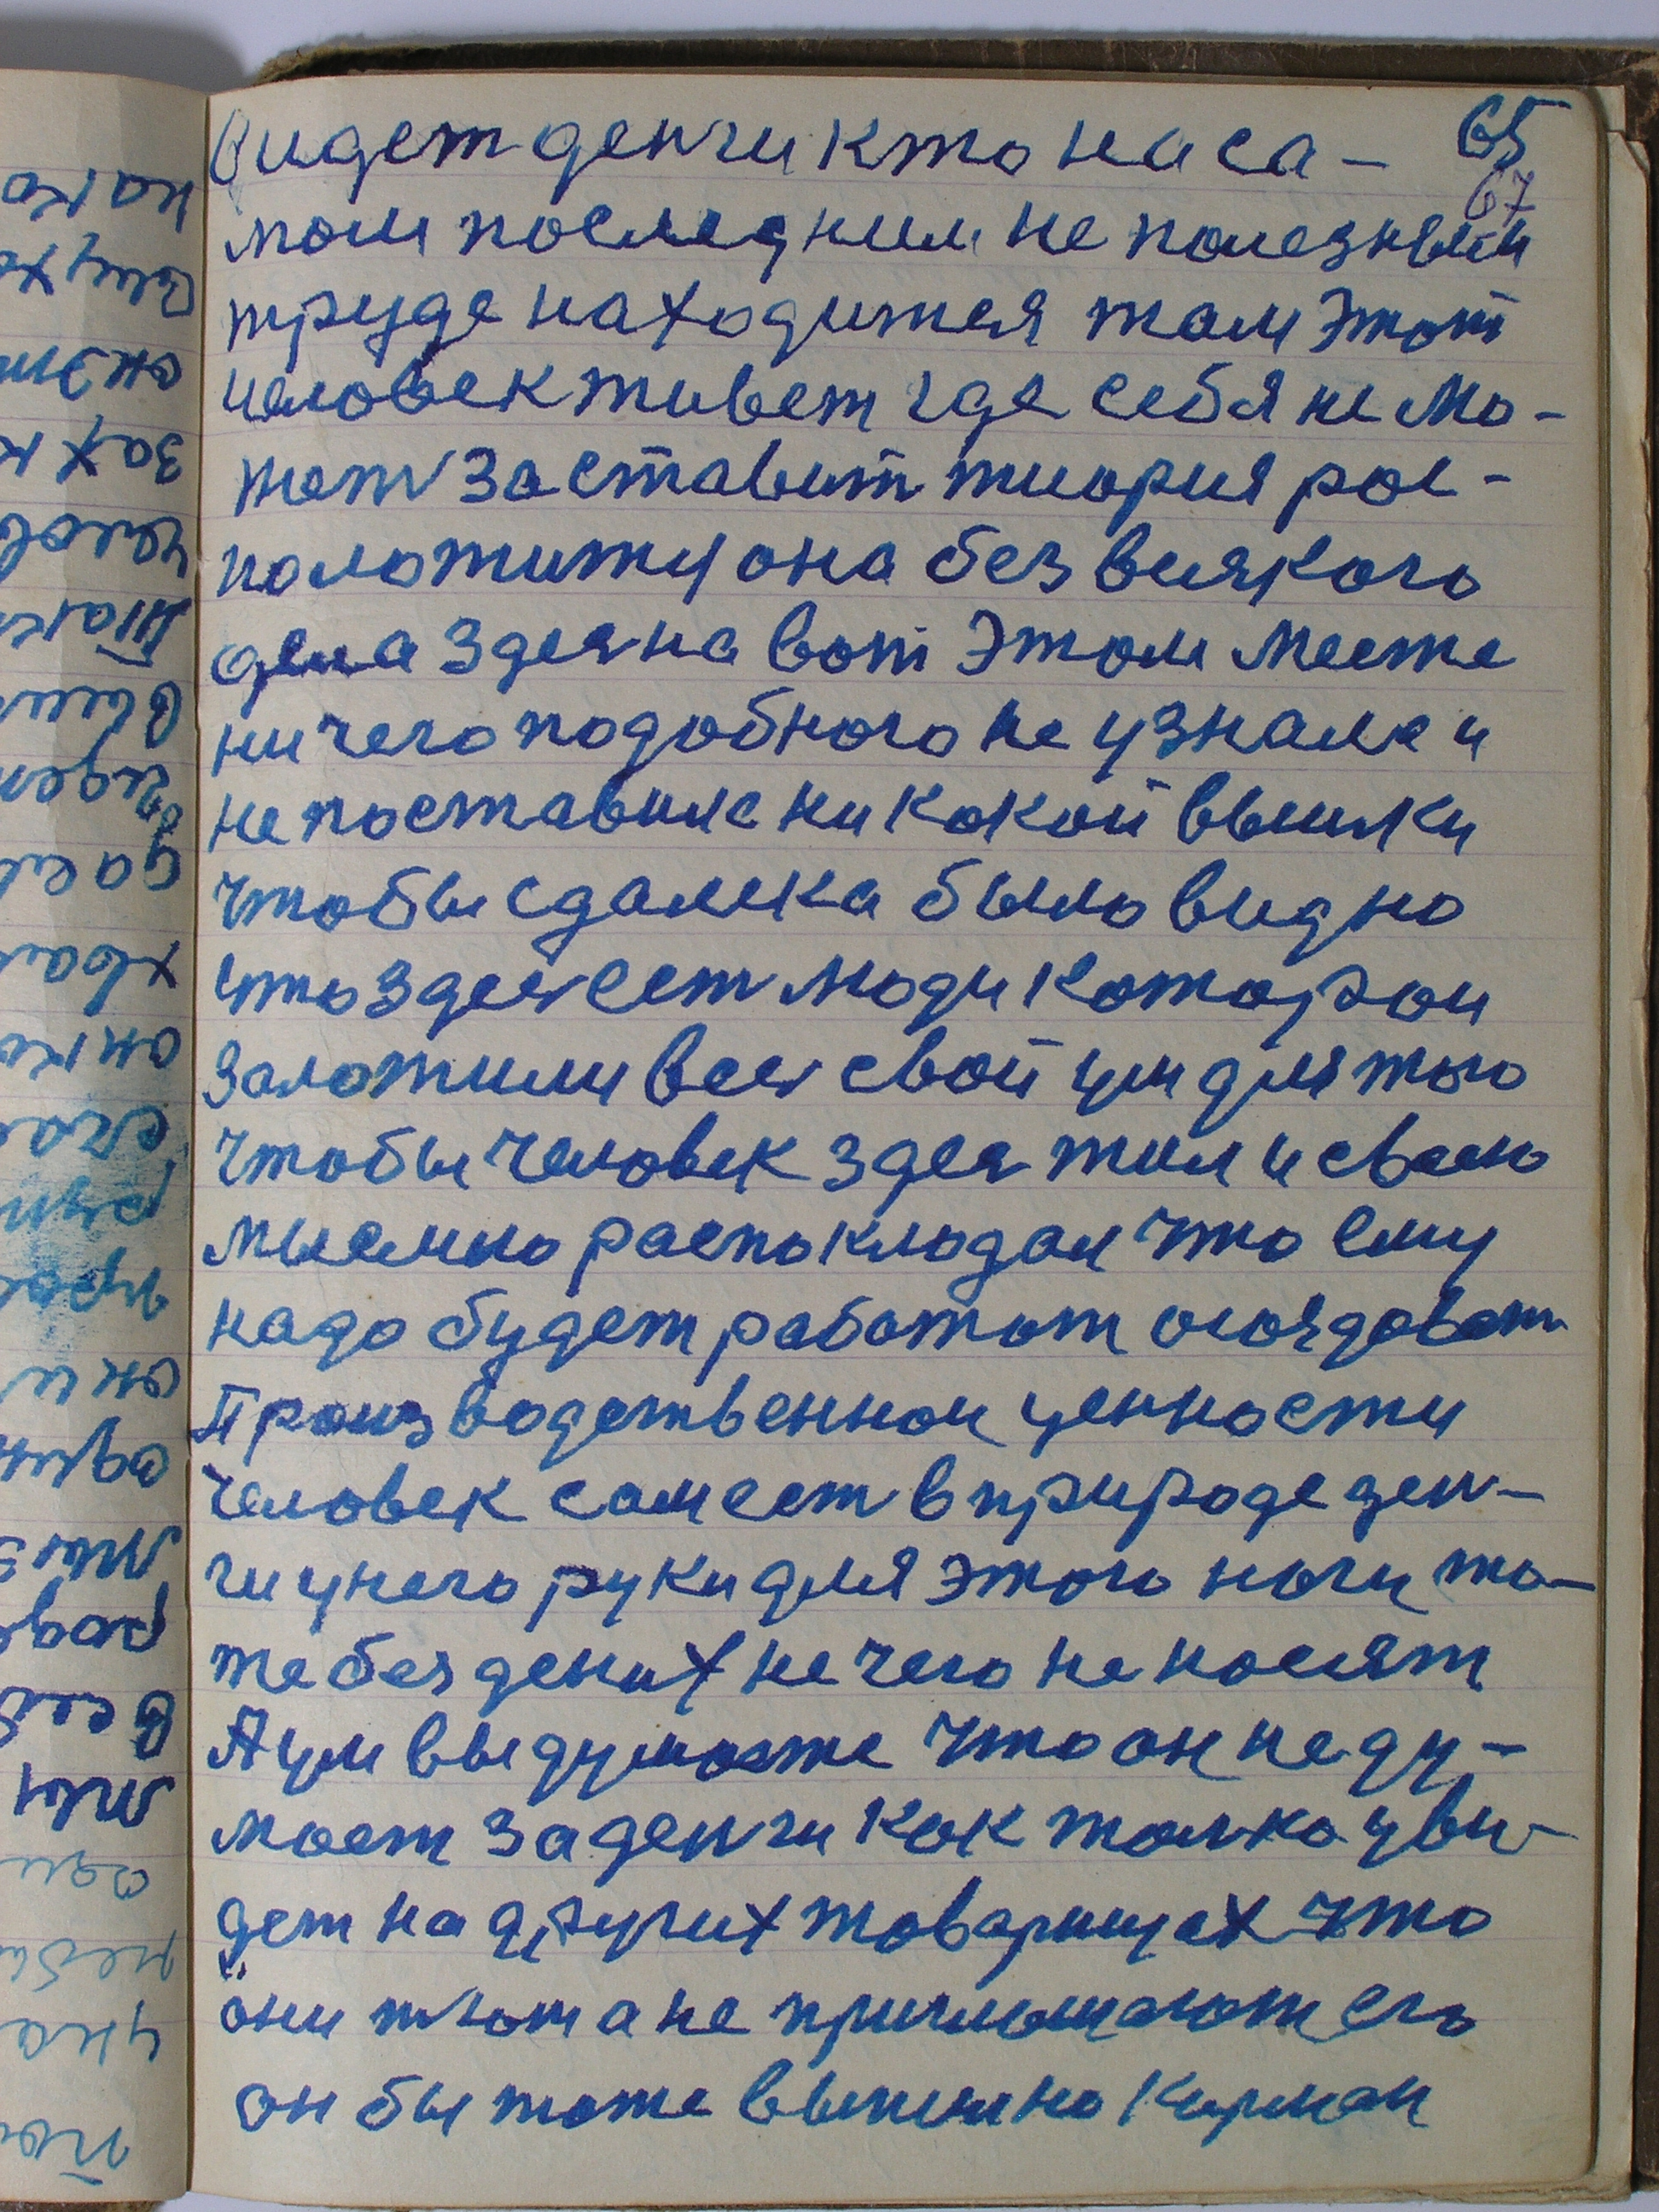 65
67
видет денги кто на са-
мом последним не полезным
труде находится там этот
человек живет где себя не мо-
жет заставит тиория рос-
положиту она без всякого
дела здеяна вот этом месте
ни чего подобного не узнале и
не поставиле ни какой вышки
чтобы сдалека было видно
что здес ест люди которои
заложили вес свой ум для того
чтобы человек здес жил и свою
мыслию распокладал что ему
надо будет работат
Производственнои ценности
человек сам ест в природе ден-
ги у него руки для этого ноги то-
же без дених не чего не носят
А ум вы думаете что он не ду-
моет за денги как толко уви-
дет на других товарищах что
они пют а не приглошают его
он бы тоже выпил но карман